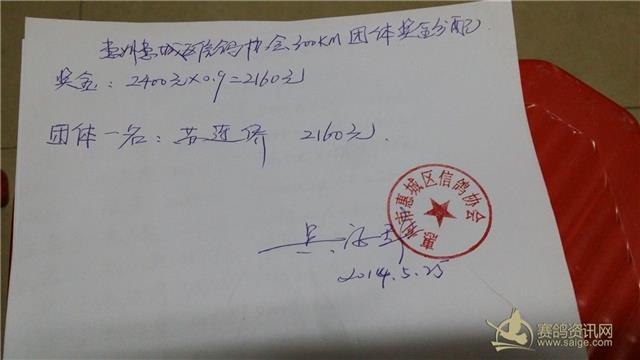 惠州惠城区信鸽协会300KM团体奖金分配
奖金：2400元×0.9=2160元
团体一名：苏莲 2160元.
惠州市惠城区信鸽协会
2014.5.25
赛鸽资讯网
www.saige.com